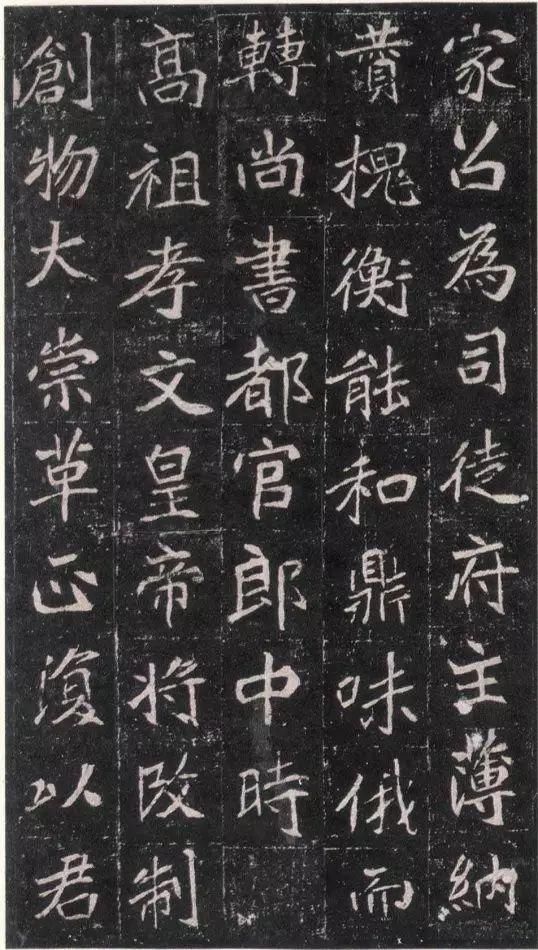 家召為司徒府主薄納
賛槐衡能和鼎味俄而
轉尚書都官郎中時
高祖孝文皇帝將改制
創物大崇革正復以君